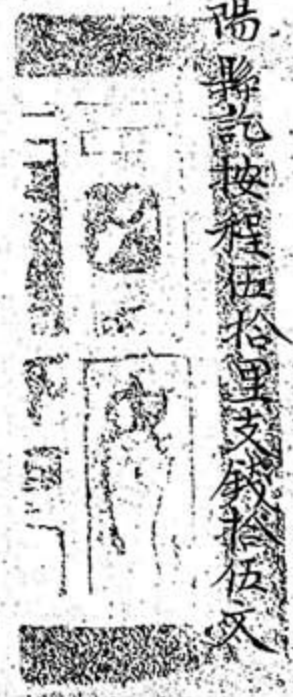 陽縣訖按程伍拾里支錢拾伍文